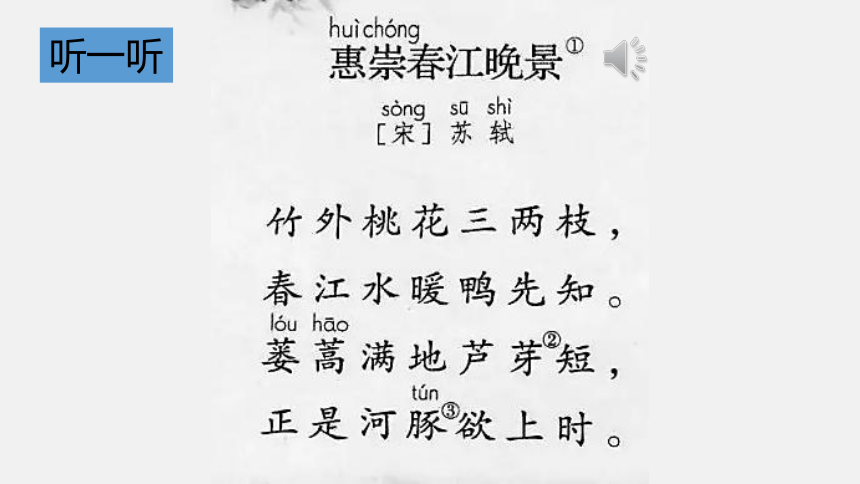 听一听
huì chóng
惠崇春江晚景①
sòng sū shì
[宋] 苏轼
竹外桃花三两枝，
春江水暖鸭先知。
lóu hāo
蒌蒿满地芦芽②短，
tún
正是河豚③欲上时。